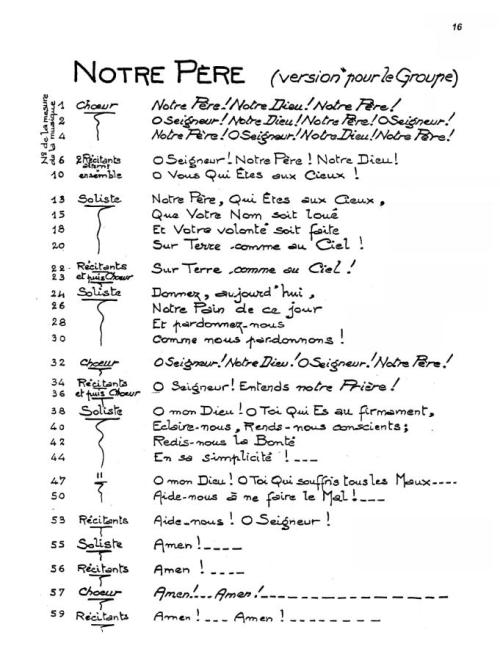 16
NOTRE PÈRE (version "pour le Groupe)
N° de la mesure de la musique
1 Choeur Notre Père! Notre Dieu! Notre Père!
2 O Seigneur! Notre Dieu! Notre Père! O Seigneur!
4 Notre Père! O Seigneur! Notre Dieu! Notre Père!
6 2 Récitants O Seigneur! Notre Père! Notre Dieu!
10 ensemble O Vous Qui Êtes aux Cieux!
13 Soliste Notre Père, Qui Êtes aux Cieux,
15 Que Votre Nom soit loué
18 Et Votre volonté soit faite
20 Sur Terre comme au Ciel!
22 Récitants Sur Terre comme au Ciel!
23 et puis Choeur
24 Soliste Donnez, aujourd'hui,
26 Notre Pain de ce jour
28 Et pardonnez-nous
30 Comme nous pardonnons!
32 Choeur O Seigneur! Notre Dieu! O Seigneur! Notre Père!
34 Récitants O Seigneur! Entends notre Prière!
36 et puis Choeur
38 Soliste O mon Dieu! O Toi Qui Es au firmament,
40 Eclaire-nous, Rends-nous conscients;
42 Redis-nous la Bonté
44 En sa simplicité!---
47 " O mon Dieu! O Toi Qui souffris tous les Maux----
50 Aide-nous à ne faire le Mal!---
53 Récitants Aide-nous! O Seigneur!
55 Soliste Amen!----
56 Récitants Amen!----
57 Choeur Amen!--- Amen!------------------
59 Récitants Amen!--- Amen!--------